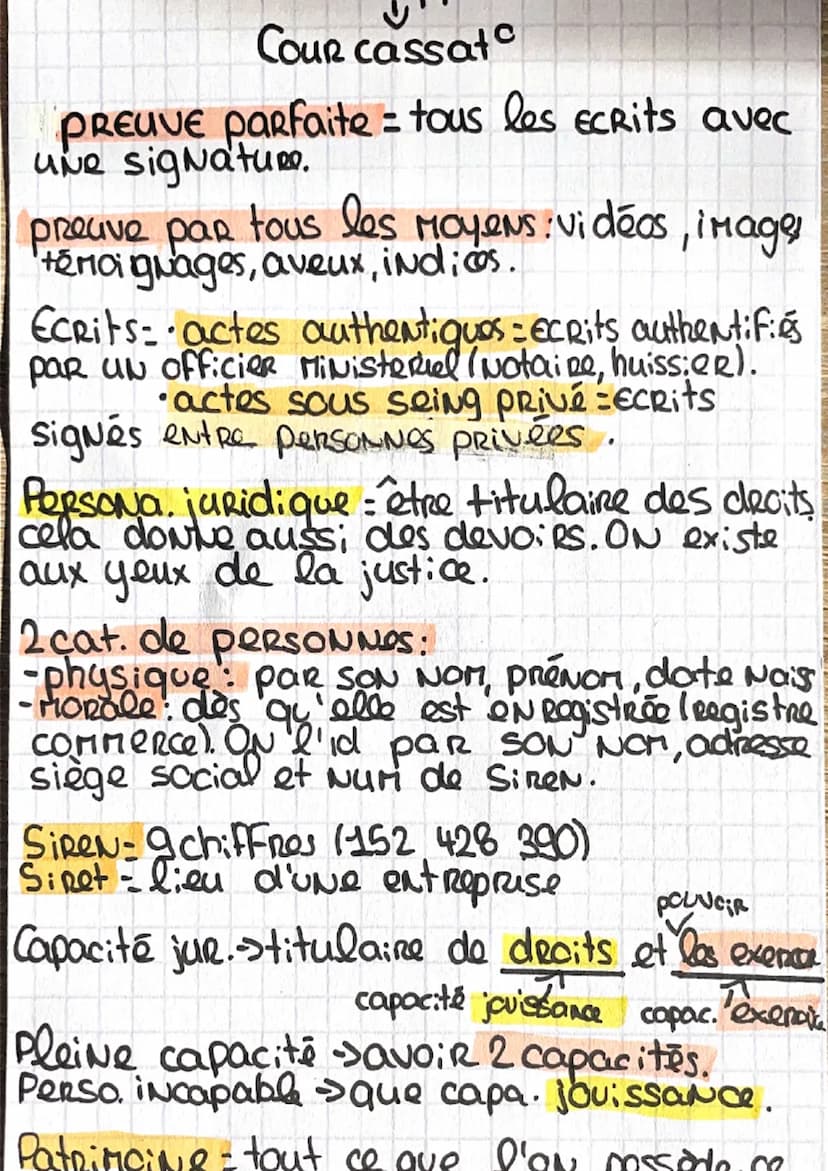 Cour cassat°
preuve parfaite = tous les écrits avec
une signature.
preuve par tous les moyens : vidéos, images
témoignages, aveux, indices.
Écrits = • actes authentiques = écrits authentifiés
par un officier ministériel (notaire, huissier).
• actes sous seing privé = écrits
signés entre personnes privées.
Persona. juridique = être titulaire des droits,
cela donne aussi des devoirs. On existe
aux yeux de la justice.
2 cat. de personnes :
- physique : par son nom, prénom, date nais
- morale : dès qu'elle est enregistrée (registre
commerce). On l'id par son nom, adresse
siège social et num de Siren.
Siren = 9 chiffres (152 428 390)
Siret = lieu d'une entreprise
pouvoir
Capacité jur. -> titulaire de droits et les exercer
capacité jouissance capac. exercice
Pleine capacité -> avoir 2 capacités.
Perso. incapable -> que capa. jouissance.
Patrimoine = tout ce que l'on possède